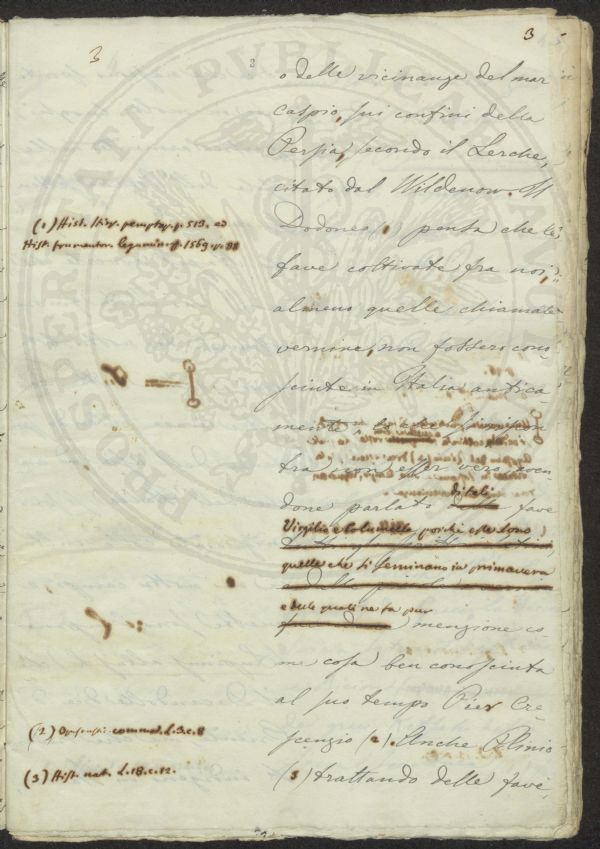 3
3
o delle vicinanze del mar
caspio, sui confini della
Persia, secondo il Lerche,
citato dal Wildenow. Il
Dodoneo (1) pensa che le
fave coltivate fra noi,
almeno quelle chiamate
vernine, non fossero cono-
sciute in Italia antica
mente
tra non esser vero, aven
done parlato di tali fave
Virgilio e Columella poichè esse sono
quelle che si seminano in primavera
e delle quali ne fa pur
menzione co
me cosa ben conosciuta
al suo tempo Pier Cre-
scenzio (2). Anche Plinio
(3) trattando delle fave,
(1) Hist. stirp. pempt. p. 513. ed
Hist. frumentor. leguminq. 1569. p. 88
(2) commod. L. 3. c. 8
(3) Hist. nat. L. 18. c. 12.